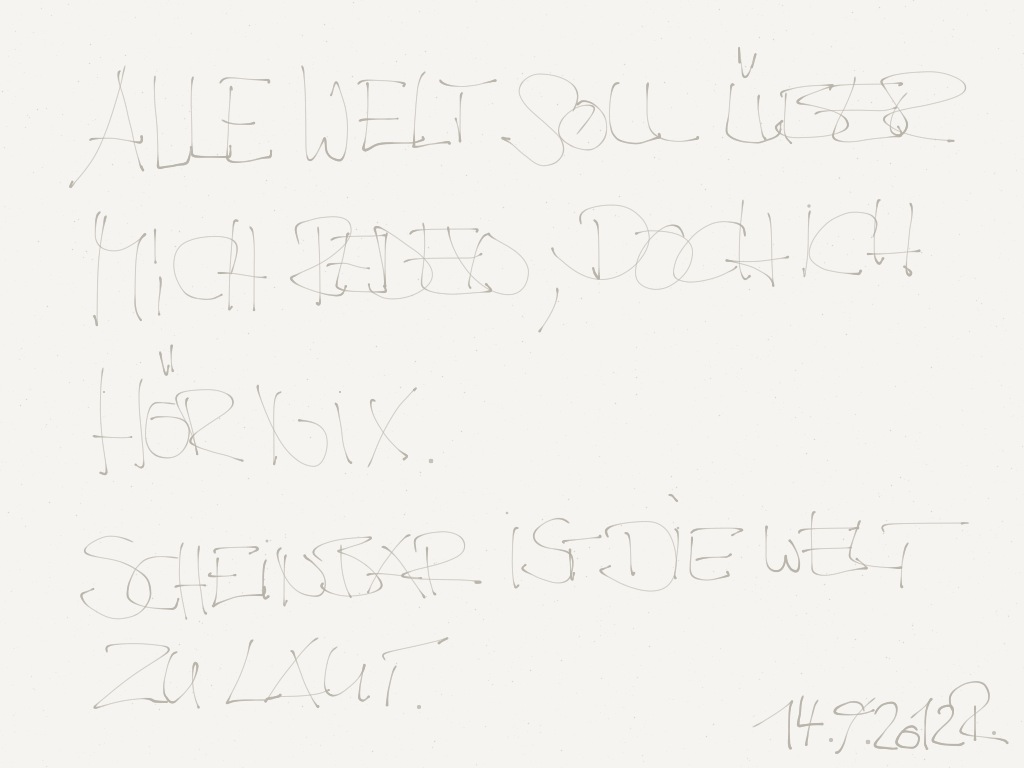 ALLE WELT SOLL ÜBER
MICH REDEN, DOCH ICH
HÖR NIX.
SCHEINBAR IST DIE WELT
ZU LAUT.
14.9.2012